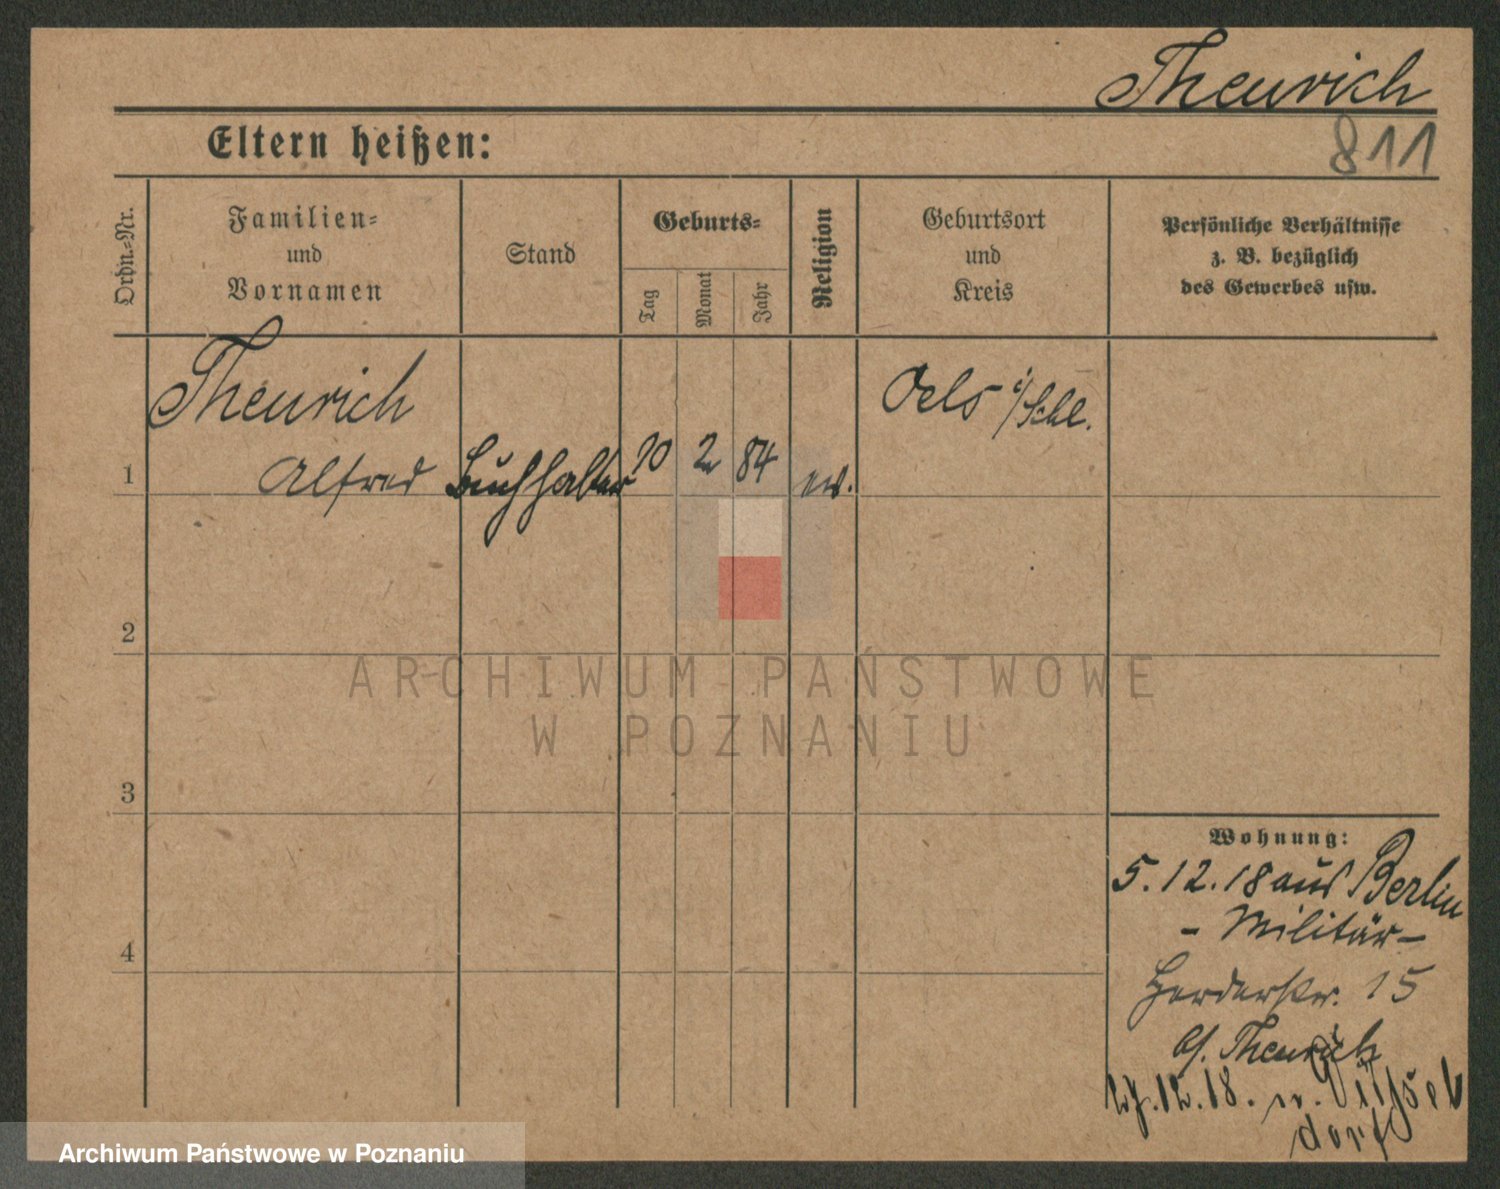 Theurich
811
Eltern heißen:
Ordn.-Nr.
Familien-
und
Vornamen
Stand
Geburts-
Tag
Monat
Jahr
Religion
Geburtsort
und
Kreis
Persönliche Verhältnisse
z. B. bezüglich
des Gewerbes usw.
Theurich
Oels i/Schl.
1 Alfred Buchhalter 20 2 84 ev.
2
3
4
Wohnung:
5.12.18 aus Berlin
- Militär -
Herderstr. 15
b/. Theurich
27.12.18. n.
dorf
ARCHIWUM PAŃSTWOWE
W POZNANIU
Archiwum Państwowe w Poznaniu